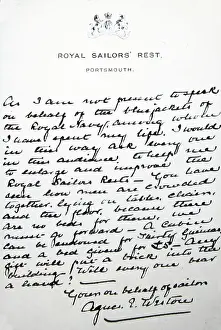 ROYAL SAILORS' REST,
PORTSMOUTH.
As I am not present to speak
on behalf of the bluejackets of
the Royal Navy, among whom
I have spent my life, I would
in this way ask every one
in this audience, to help me
to enlarge and improve the
Royal Sailors Rests - You have
seen how men are crowded
together, lying on tables, chairs
and the floor, because there
are no beds for them, we
must go forward - A Cabin
can be endowed for Thirty Guineas
and a bed given for £5. Any
gift will put a brick into the
building! Will every one bear
a hand?
Yours on behalf of sailors
Agnes E. Weston